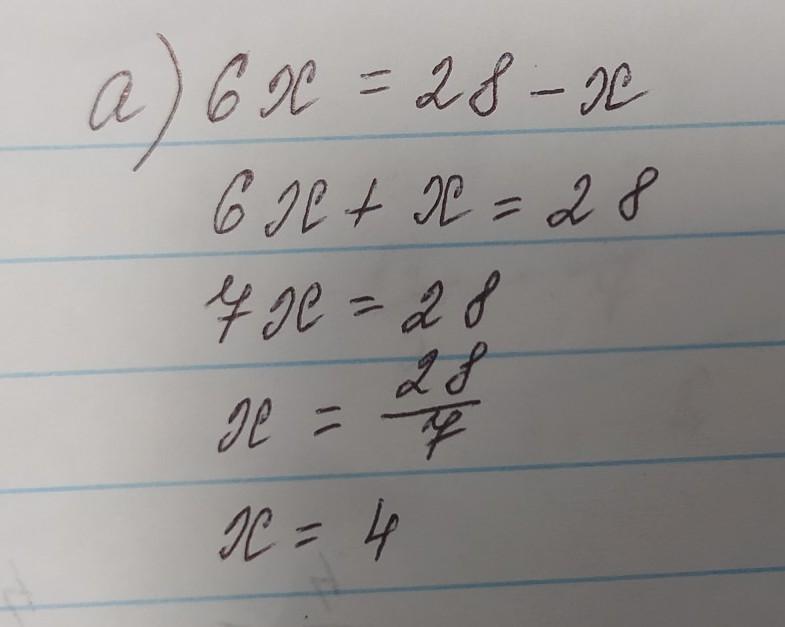 а) 6x = 28 - x
6x + x = 28
7x = 28
x = 28/7
x = 4